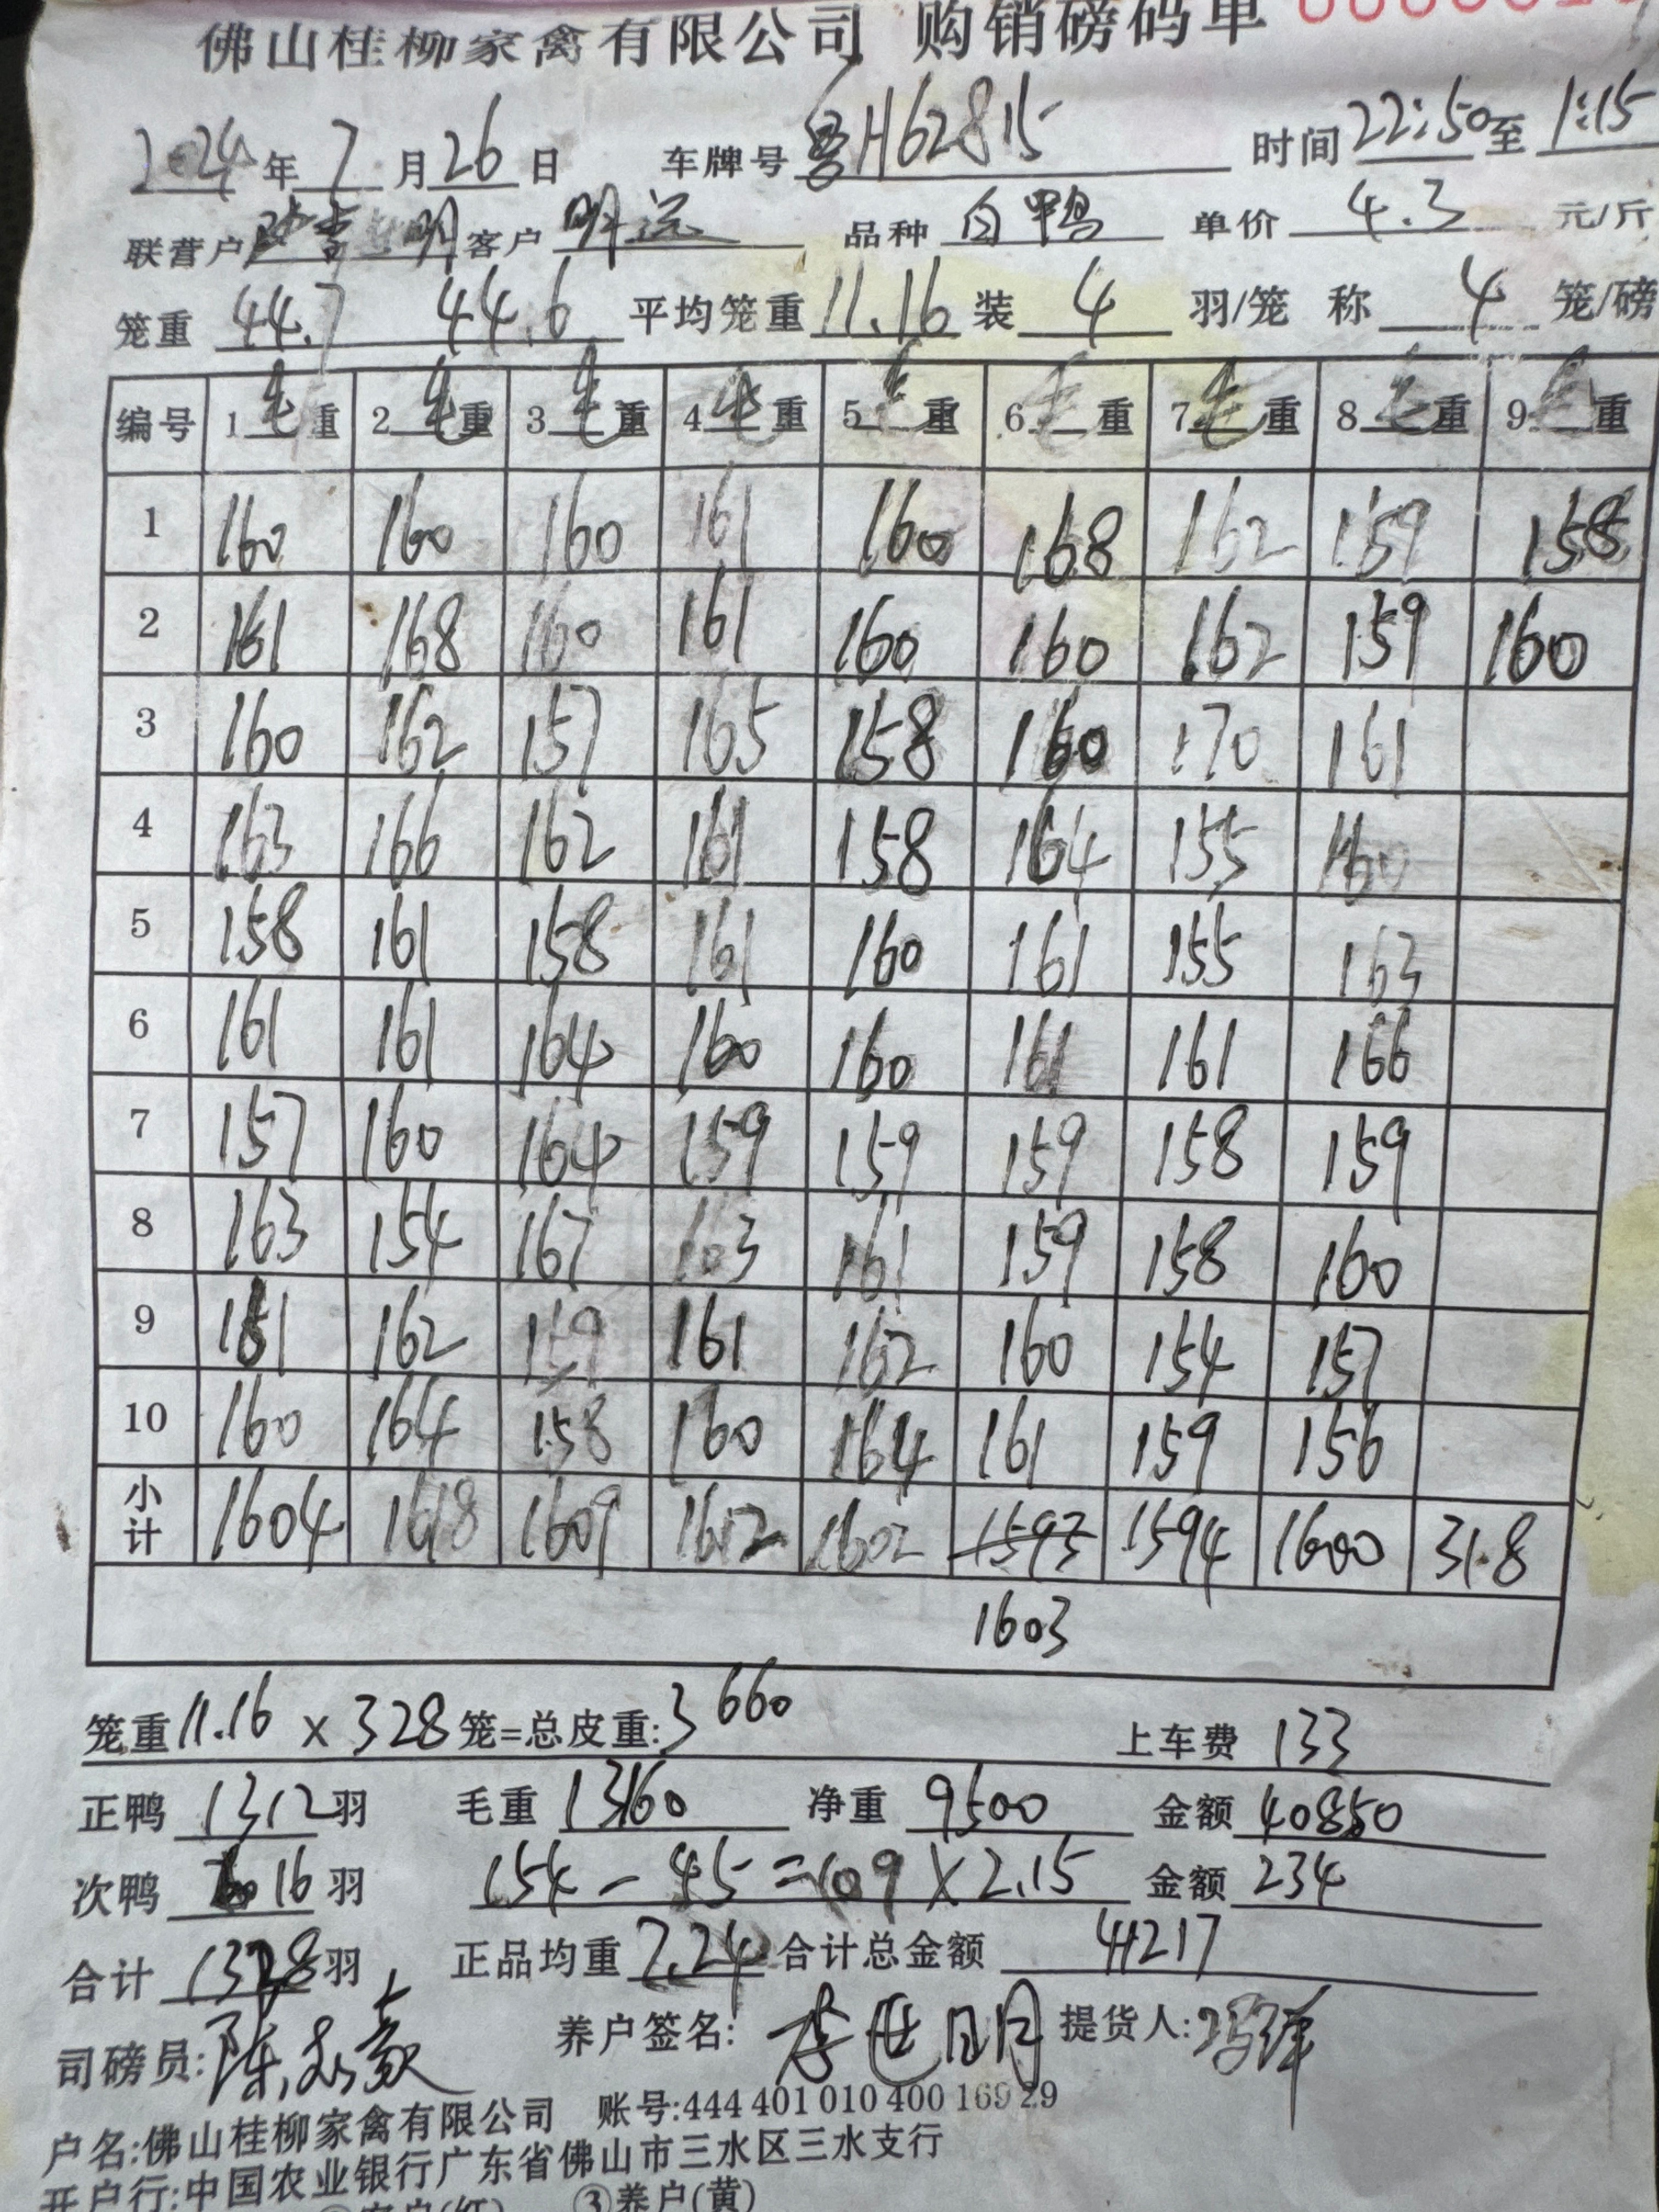 佛山桂柳家禽有限公司 购销磅码单
2024年 7 月 26 日 车牌号 粤H62815 时间 22:50 至 1:15
联营户 明 客户 明远 品种 白鸭 单价 4.3 元/斤
笼重 44.7 44.6 平均笼重 11.16 装 4 羽/笼 称 4 笼/磅
编号 1毛重 2毛重 3毛重 4毛重 5毛重 6毛重 7毛重 8毛重 9毛重
1 160 160 160 161 160 168 162 159 158
2 161 168 160 161 160 160 162 159 160
3 160 162 157 165 158 160 170 161
4 163 166 162 161 158 164 155 160
5 158 161 158 161 160 161 155 163
6 161 161 164 160 160 161 161 166
7 157 160 164 159 159 159 158 159
8 163 154 167 163 161 159 158 160
9 161 162 159 161 162 160 154 157
10 160 164 158 160 164 161 159 156
小计 1604 1618 1609 1612 1602 1593 1594 1600 318
1603
笼重 11.16 × 328 笼=总皮重: 3660 上车费 133
正鸭 1312 羽 毛重 13160 净重 9500 金额 40850
次鸭 16 羽 154 - 45 = 109 × 2.15 金额 234
合计 1328 羽 正品均重 7.24 合计总金额 41217
司磅员: 陈 养户签名: 李世明 提货人: 冯
户名:佛山桂柳家禽有限公司 账号:444 401 010 400 169 29
开户行:中国农业银行广东省佛山市三水区三水支行
③养户(黄)